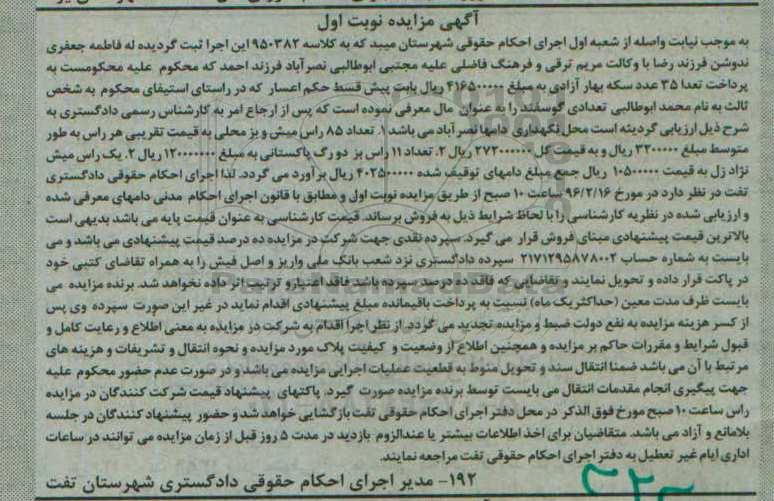 آگهی مزایده نوبت اول
به موجب نیابت واصله از شعبه اول اجرای احکام حقوقی شهرستان میبد که به کلاسه ۹۵۰۳۸۲ این اجرا ثبت گردیده له فاطمه جعفری
ندوشن فرزند رضا با وکالت مریم ترقی و فرهنگ فاضلی علیه مجتبی ابوطالبی نصرآباد فرزند احمد که محکوم علیه محکومست به
پرداخت تعدا ۳۵ عدد سکه بهار آزادی به مبلغ ۴۱۶۵۰۰۰۰۰ ریال بابت پیش قسط حکم اعسار که در راستای استیفای محکوم به شخص
ثالث به نام محمد ابوطالبی تعدادی گوسفند را به عنوان مال معرفی نموده است که پس از ارجاع امر به کارشناس رسمی دادگستری به
شرح ذیل ارزیابی گردیده است محل نگهداری دامها نصرآباد می باشد ۱. تعداد ۸۵ راس میش و بز محلی به قیمت تقریبی هر راس به طور
متوسط مبلغ ۳۲۰۰۰۰۰ ریال و به قیمت کل ۲۷۲۰۰۰۰۰۰ ریال ۲. تعداد ۱۱ راس بز دو رگ پاکستانی به مبلغ ۱۲۰۰۰۰۰۰۰ ریال ۳. یک راس میش
نژاد زل به قیمت ۱۰۵۰۰۰۰۰ ریال جمع مبلغ دامهای توقیف شده ۴۰۲۵۰۰۰۰۰ ریال برآورد می گردد. لذا اجرای احکام حقوقی دادگستری
تفت در نظر دارد در مورخ ۹۶/۲/۱۶ ساعت ۱۰ صبح از طریق مزایده نوبت اول و مطابق با قانون اجرای احکام مدنی دامهای معرفی شده
و ارزیابی شده در نظریه کارشناسی را با لحاظ شرایط ذیل به فروش برساند. قیمت کارشناسی به عنوان قیمت پایه می باشد بدیهی است
بالاترین قیمت پیشنهادی مبنای فروش قرار می گیرد. سپرده نقدی جهت شرکت در مزایده ده درصد قیمت پیشنهادی می باشد و می
بایست به شماره حساب ۲۱۷۱۲۹۵۸۷۸۰۰۲ سپرده دادگستری نزد شعب بانک ملی واریز و اصل فیش را به همراه تقاضای کتبی خود
در پاکت قرار داده و تحویل نمایند و تقاضایی که فاقد ده درصد سپرده باشد فاقد اعتبار و ترتیب اثر داده نخواهد شد. برنده مزایده می
بایست ظرف مدت معین (حداکثر یک ماه) نسبت به پرداخت باقیمانده مبلغ پیشنهادی اقدام نماید در غیر این صورت سپرده وی پس
از کسر هزینه مزایده به نفع دولت ضبط و مزایده تجدید می گردد. از نظر اجرا اقدام به شرکت در مزایده به معنی اطلاع و رعایت کامل و
قبول شرایط و مقررات حاکم بر مزایده و همچنین اطلاع از وضعیت و کیفیت پلاک مورد مزایده و نحوه انتقال و تشریفات و هزینه های
مرتبط با آن می باشد ضمنا انتقال سند و تحویل منوط به قطعیت عملیات اجرایی مزایده می باشد و در صورت عدم حضور محکوم علیه
جهت پیگیری انجام مقدمات انتقال می بایست توسط برنده مزایده صورت گیرد. پاکتهای پیشنهاد قیمت شرکت کنندگان در مزایده
راس ساعت ۱۰ صبح مورخ فوق الذکر در محل دفتر اجرای احکام حقوقی تفت بازگشایی خواهد شد و حضور پیشنهاد کنندگان در جلسه
بلامانع و آزاد می باشد. متقاضیان برای اخذ اطلاعات بیشتر یا عندالزوم بازدید در مدت ۵ روز قبل از زمان مزایده می توانند در ساعات
اداری ایام غیر تعطیل به دفتر اجرای احکام حقوقی تفت مراجعه نمایند.
۱۹۲- مدیر اجرای احکام حقوقی دادگستری شهرستان تفت